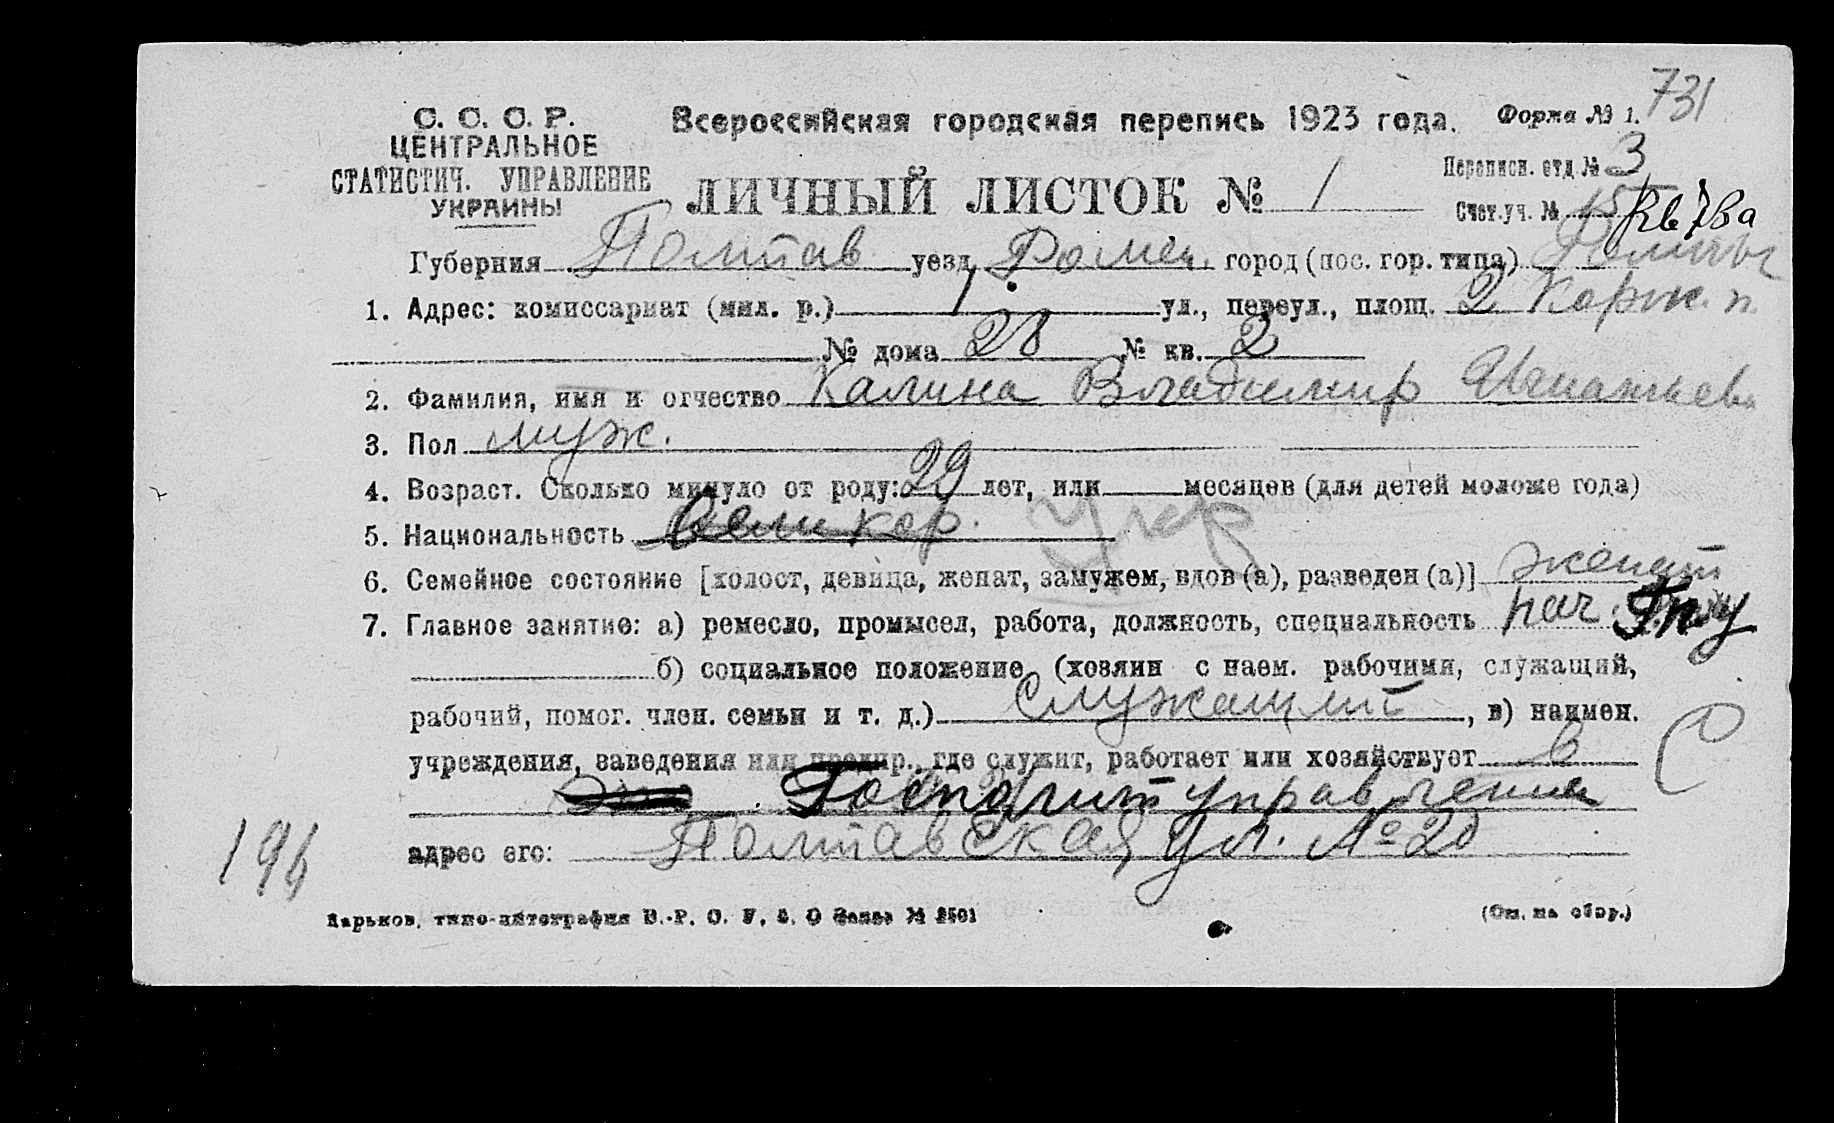 731
С. С. С. Р.
ЦЕНТРАЛЬНОЕ
СТАТИСТИЧ. УПРАВЛЕНИЕ
УКРАИНЫ
Всероссийская городская перепись 1923 года. Форма № 1.
Переписн. отд. № 3
ЛИЧНЫЙ ЛИСТОК № 1
Счет. уч. № 15
Губерния Полтав уезд Ромен. город (пос. гор. типа) Ромны
1. Адрес: комиссариат (мил. р.) 1 ул., переул., площ. 2
№ дома 28 № кв. 2
2. Фамилия, имя и отчество Калина Владимир
3. Пол муж.
4. Возраст. Сколько минуло от роду: 29 лет, или месяцев (для детей моложе года)
5. Национальность Великор. Укр
6. Семейное состояние [холост, девица, женат, замужем, вдов (а), разведен (а)] женат
7. Главное занятие: а) ремесло, промысел, работа, должность, специальность нач. Гпу
б) социальное положение (хозяин с наем. рабочими, служащий,
рабочий, помог. член. семьи и т. д.) Служащий, в) наимен.
учреждения, заведения или предпр., где служит, работает или хозяйствует в
Госполит управление
адрес его: Полтавская ул. № 20
194
Харьков, типо-литография В. Р. О. У. З. О Заказ № 2501
(См. на обор.)